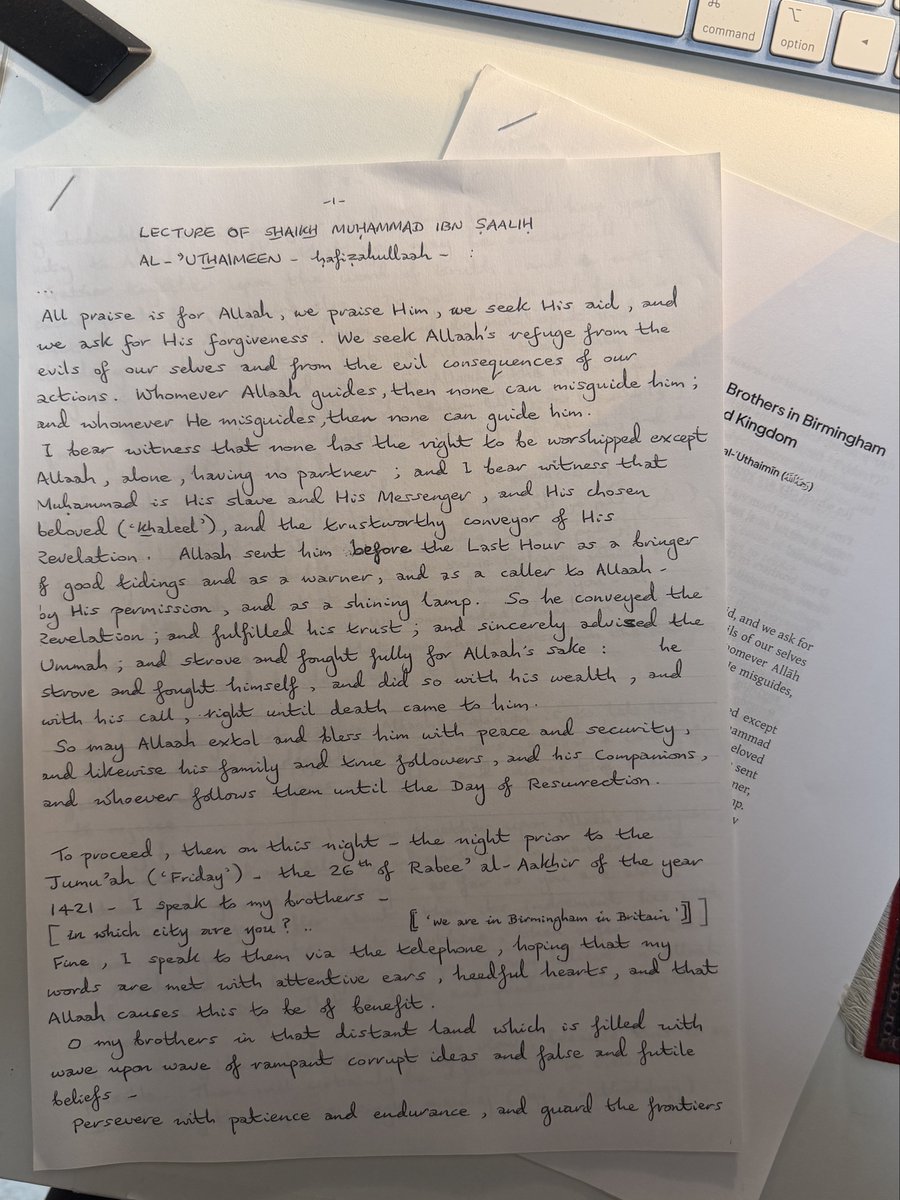 ⌘
command
⌥
option
◂
-1-
LECTURE OF SHAIKH MUḤAMMAD IBN ṢAALIḤ
AL-'UTHAIMEEN - ḥafiẓahullaah - :
...
All praise is for Allaah, we praise Him, we seek His aid, and
we ask for His forgiveness. We seek Allaah's refuge from the
evils of our selves and from the evil consequences of our
actions. Whomever Allaah guides, then none can misguide him;
and whomever He misguides, then none can guide him.
I bear witness that none has the right to be worshipped except
Allaah, alone, having no partner; and I bear witness that
Muḥammad is His slave and His Messenger, and His chosen
beloved ('khaleel'), and the trustworthy conveyor of His
Revelation. Allaah sent him before the Last Hour as a bringer
of good tidings and as a warner, and as a caller to Allaah -
by His permission, and as a shining lamp. So he conveyed the
Revelation; and fulfilled his trust; and sincerely advised the
Ummah; and strove and fought fully for Allaah's sake: he
strove and fought himself, and did so with his wealth, and
with his call, right until death came to him.
So may Allaah extol and bless him with peace and security,
and likewise his family and true followers, and his Companions,
and whoever follows them until the Day of Resurrection.
To proceed, then on this night - the night prior to the
Jumu'ah ('Friday') - the 26th of Rabee' al-Aakhir of the year
1421 - I speak to my brothers -
[in which city are you? .. [['We are in Birmingham in Britain']]]
Fine, I speak to them via the telephone, hoping that my
words are met with attentive ears, heedful hearts, and that
Allaah causes this to be of benefit.
O my brothers in that distant land which is filled with
wave upon wave of rampant corrupt ideas and false and futile
beliefs -
Persevere with patience and endurance, and guard the frontiers
Brothers in Birmingham
d Kingdom
al-ʿUthaimīn
d, and we ask for
ils of our selves
omever Allāh
He misguides,
ed except
ammad
eloved
sent
ner,
mp.